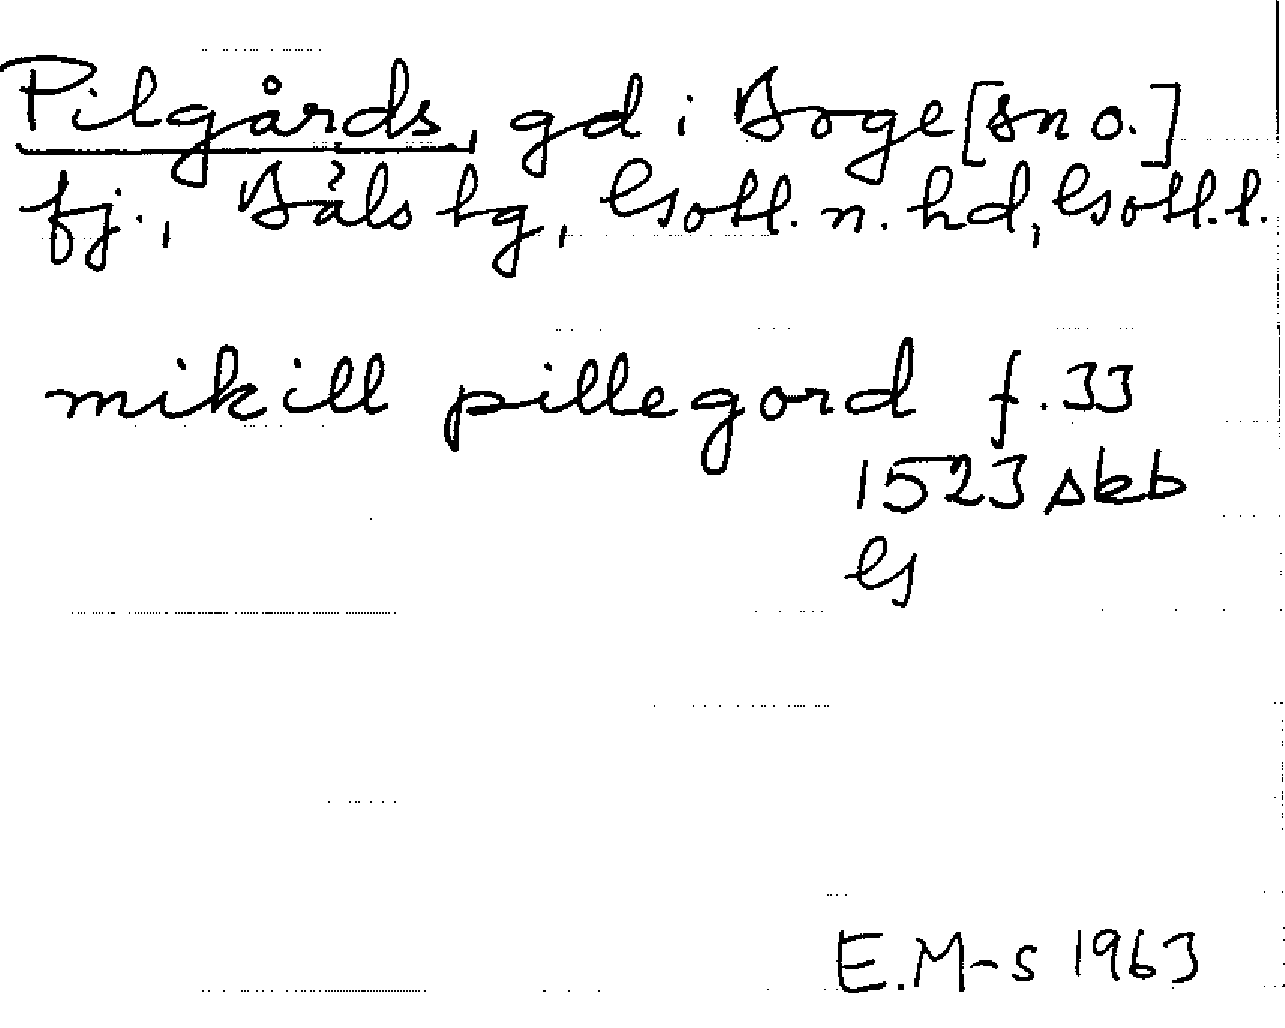 Pilgårds, gd i Boge [sn o.]
fj., Bäls hg, Gotl. n. hd, Gotl. l.
mikill pillegord f. 33
1523 skb
G
E.M-s 1963